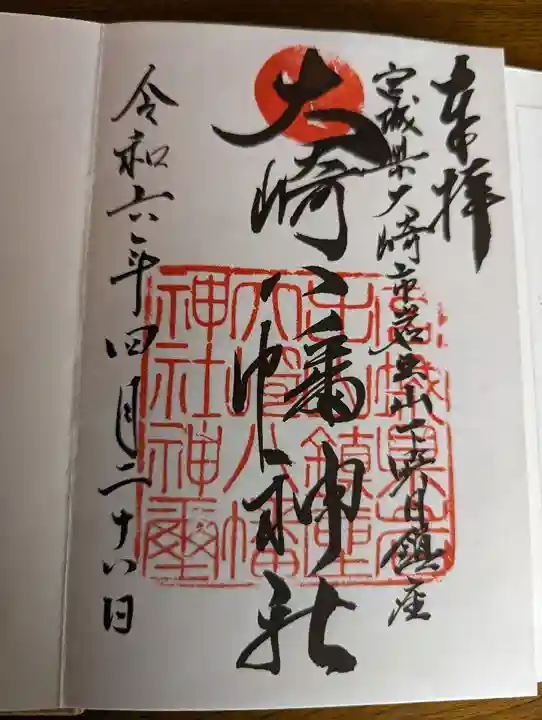 奉拝
宮城県大崎市岩出山下真山鎮座
大崎八幡神社
令和六年四月二十八日
大崎八幡
神社神璽